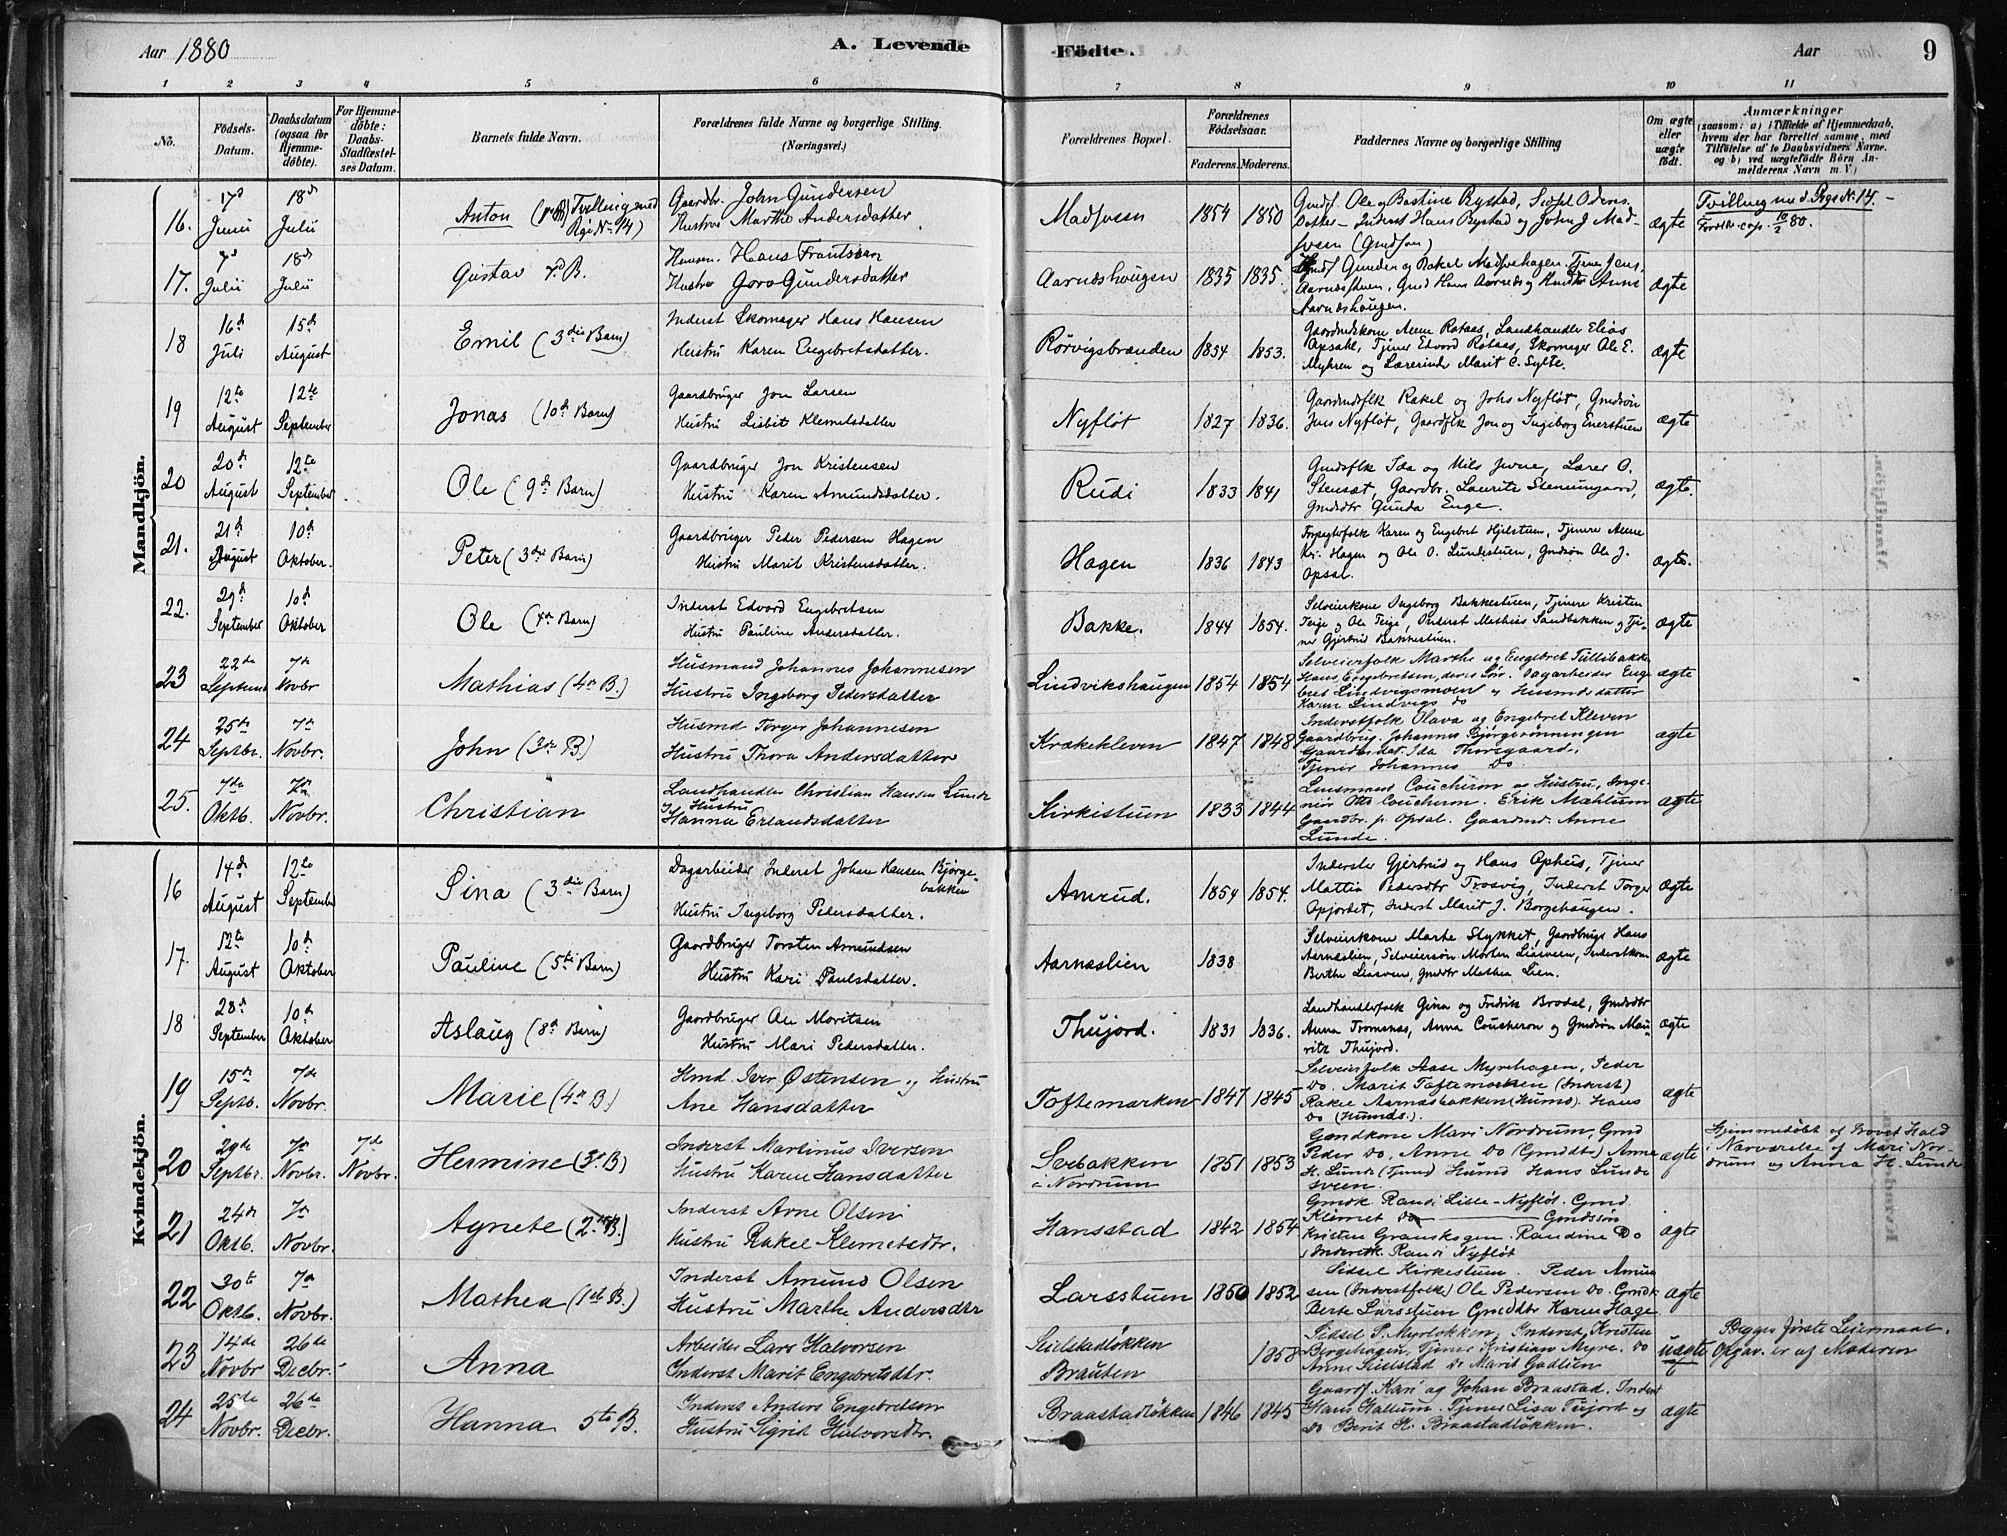 Aar 1880 A. Levende
Födte. Aar 9
1 2 3 4 5 6 7 8 9 10 11
No. Födsels-Datum. Daabsdatum (ogsaa for Hjemmedöbte). For Hjemmedöbte: Daabs-Stadfæstelses Datum. Barnets fulde Navn. Forældrenes fulde Navne og borgerlige Stilling. (Næringsvei.)
Forældrenes Bopæl. Forældrenes Födselsaar. Faderens. Moderens. Faddernes Navne og borgerlige Stilling Om ægte eller uægte födt. Anmærkninger (saasom: a) i Tilfælde af Hjemmedaab, hvem der har forrettet samme, med Tilföielse af to Daabsvidners Navne, og b) ved uægtefödte Börn Anmelderens Navn m. V.)
Mandkjön.
16. 17d Juni 18d Juli Anton Tvilling med Rgr No 14) Gaardbr. John Gundersen Hustru Marthe Andersdatter Madsveen 1854 1850 ægte Tvilling med Rgs No 14.
17. 7d Juli 18d Juli Gustav 7d B. Husm. Hans Frantssen Hustru Goro Gundersdatter Aarndshougen 1835 1835. ægte
18 16d Juli 15d August Emil (3die Barn) Inderst Skomager Hans Hansen Hustru Karen Engebretsdatter. Rörvigsbrænden 1854 1853. Gaardmdskone Anne Rotaas, Landhandler Elias Opsahl, Tjener Edvord Rotaas, Skomager Ole E. Myhren og Lærerinde Marit C. Sylte. ægte
19 12te August 12te September Jonas (10d Barn) Gaardbruger Jon Larsen Hustru Lisbet Klemetsdatter Nyflöt 1827 1836. Gaardmdsflk Rakel og Johs Nyflöt, Gmdsön Jens Nyflöt, Gaardflk Jon og Ingeborg Enerstuen ægte
20 20d August 12te September Ole (9d Barn) Gaardbruger Jon Kristensen Hustru Karen Amundsdatter. Rudi 1833 1841 Gmdsflk Ida og Nils Jevne, Lærer O. Stensæt, Gaardbr. Lauritz Stensumgaard, Gmdsdtr Gunda Enge. ægte.
21. 21d August 10d Oktober. Peter (3die Barn) Gaardbruger Peder Pedersen Hagen Hustru Marit Kristensdatter. Hagen 1836 1843 Forpagterfolk Karen og Engebret Hjelstuen, Tjenere Anne Kr. Hagen og Ole O. Lundestuen, Gmdsön Ole J. Opsal. ægte.
22. 29d September 10d Oktober Ole (4de Barn) Inderst Edvord Engebretsen Hustru Pauline Andersdatter. Bakke. 1844 1854. Selveierkone Ingeborg Bakkestuen, Tjenere Kristen Teige og Ole Teige, Inderst Mathias Sandbakken og Tjener Gjertrud Bakkestuen. ægte
23 22de Septemb 7de Novbr Mathias (4de B.) Husmand Johannes Johannesen Hustru Ingeborg Pedersdatter Lindvikshaugen 1854 1854 Selveierfolk Marthe og Engebret Tullibakken Hans Engebretsen, deres Sön. Dagarbeider Engebret Lindvigsmoen og Husmdsdatter Karen Lindvigs do ægte
24 25de Septbr. 7de Novbr. John (3de B) Husmd Torger Johannesen Hustru Thora Andersdatter Krækekleven 1847 1848 Inderstfolk Olava og Engebret Kleven Gaardbrug. Johannes Bjørgerønningen Gaardmdsdat. Ida Thorsgaard. Tjener Johannes Do ægte
25. 7de Oktb. 7de Novbr. Christian Landhandler Christian Hansen Lunde Hustru Hanna Erlandsdatter Kirkistuen 1833 1844 Lensmand Coucheron og Hustru, Ingeniör Otto Coucheron. Erik Mæhlum Gaardbr. p. Opsal. Gaardmd. Anne Lunde. ægte
Kvindekjön.
16 14d August 12te September Sina (3die Barn) Dagarbeider Inderst Johan Hansen Bjørgebakken Hustru Ingeborg Pedersdatter. Amrud. 1854 1854. Inderster Gjertrud og Hans Ophus, Tjener Mattia Pedersdtr Trosvig, Inderst Torger Opjordet, Inderst Marit J. Borgehaugen. ægte
17. 12te August 10d Oktober Pauline (5te Barn) Gaardbruger Torsten Amundsen Hustru Kari Paulsdatter. Aarnæslien 1838 Selveierkone Marte Stykket, Gaardbruge Hans Aarnæslien, Selveiersön Morten Liasveen, Inderstkone Berthe Liasveen, Gmdsdtr Mathea Lien. ægte
18 28d September 10d Oktober Aslaug (8d Barn) Gaardbruger Ole Moritsen Hustru Mari Pedersdatter. Thujord. 1831 1836. Landhandlerfolk Gina og Fredrik Brodal, Gmdsdtr Anna Tromsnæs, Anna Coucheron og Gmdsön Mauritz Thujord. ægte
19 15de Septb. 7de Novbr. Marie (4de B.) Hmd. Iver Østensen og Hustru Ane Hansdatter Toftemarken 1847 1845 Selveierfolk Aase Myrehagen, Peder Do. Marit Toftemarken (Inderst) Rakel Aarnæsbakken (Humd). Hans Do (Humds.). ægte
20 29de Septbr. 7de Novbr. 7de Novbr. Hermine (3. B) Inderst Martinus Iversen Hustru Karen Hansdatter Svebakken a Nordrum 1851 1853 Gmdkone Mari Nordrum, Gmd Peder Do, Anne Do (Gmddtr) Anna H. Lunde (Tjener) Husmd Hans Lundesveen. ægte Hjemmedøbt af Provst Hald i Nærværelse af Mari Nordrum og Anna H. Lunde
21 24de Oktb. 7de Novbr. Agnete (2. B.) Inderst Arne Olsen Hustru Rakel Klemetsdtr. Hansstad 1842 1854 Gmdk. Randi Lille-Nyflöt. Gmd. Klemet Do Gmdssön Kristen Granskogen. Randine Do Inderstk. Randi Nyflöt ægte
22 30te Oktb. 7de Novbr. Mathea (1ste B.) Inderst Amund Olsen Hustru Marthe Andersdtr Larsstuen 1850 1852 Sidsel Kirkestuen. Peder Amundsen (Inderstfolk) Ole Pedersen Do. Gmdk Berte Larsstuen Gmddtr Karen Hage ægte
23 14de Novbr 26de Decbr. Anna Arbeider Lars Halvorsen Inderst Marit Engebretsdtr. Seielstadløkken Brauten 1858 Sidsel P. Myrløkken, Inderst, Kristen Bergehagen, Tjener Kristian Myre. Do Anne Seielstad Do Marit Gadlien uægte Begges første Leiermaal. Opgav. er af Moderen
24 25de Novbr. 26de Decbr. Hanna 5te B. Inderst Anders Engebretsen Hustru Sigrid Halvorsdtr. Braastadløkken 1846 1845 Gaardf. Kari og Johan Braastad. Inderst Hans Kallum. Tjener Lisa Tujord og Do Berit H. Braastadløkken. ægte